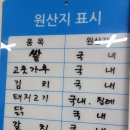 원산지 표시
품목 원산지
쌀 국내
고춧가루 국내
김치 국내
돼지고기 국내, 칠레
닭 국내
국내